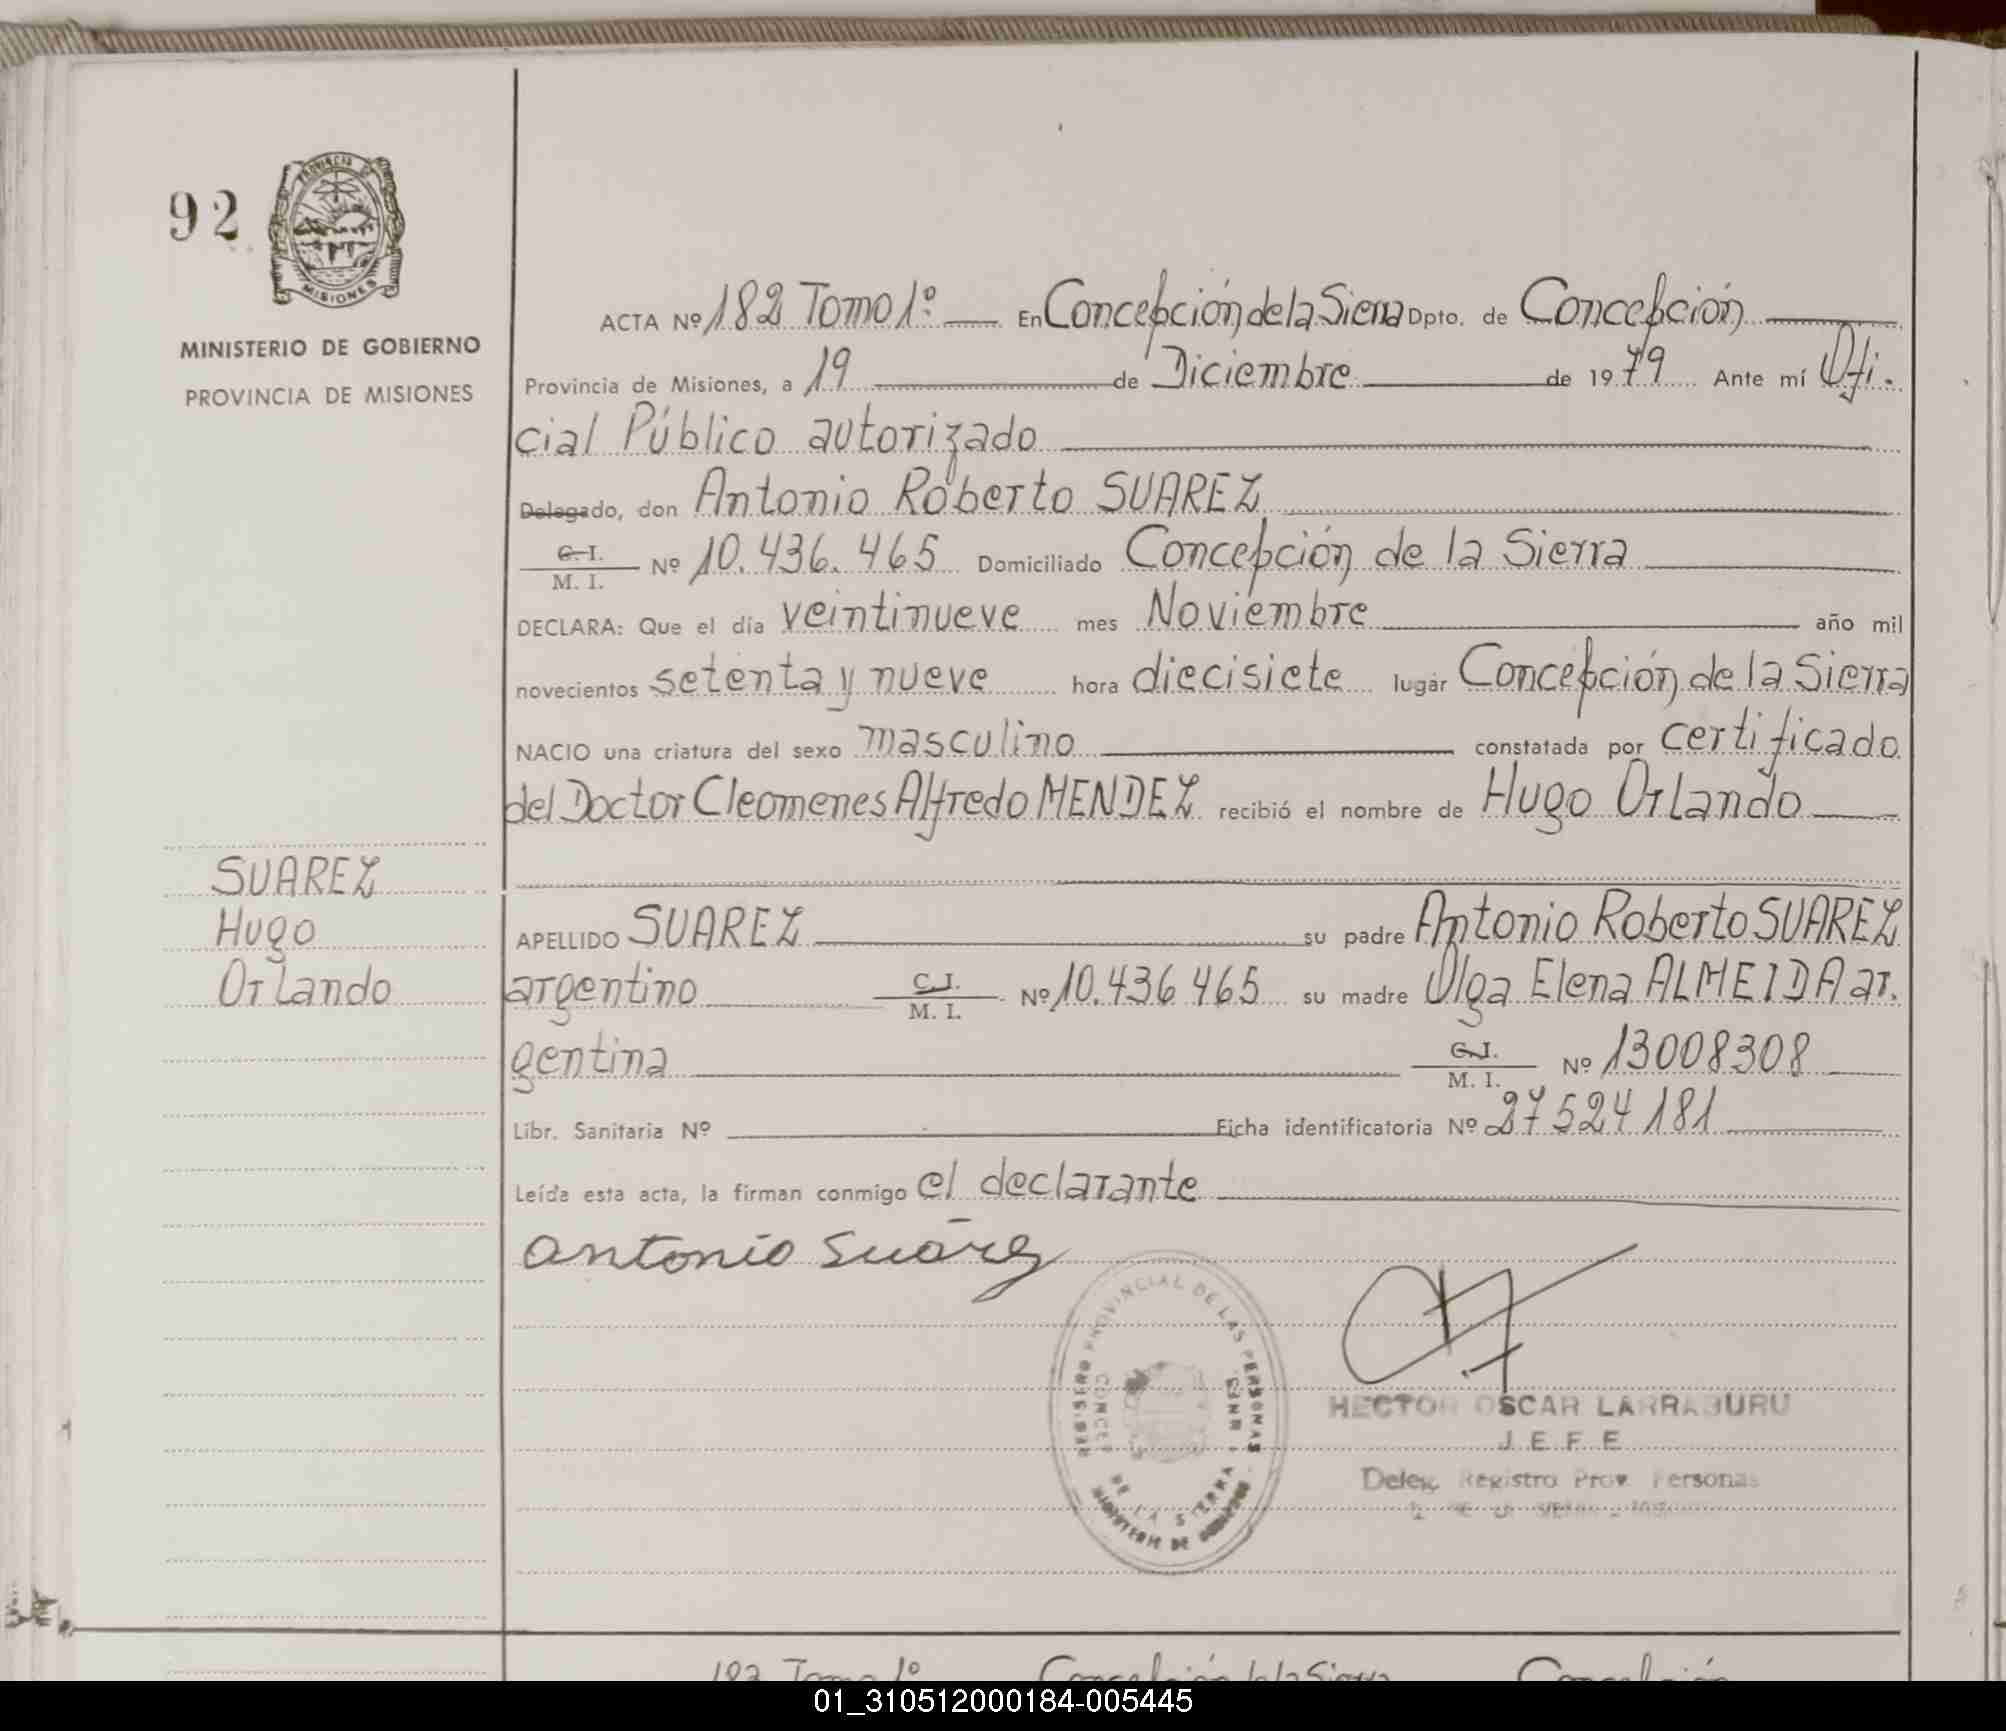 92
PROVINCIA DE
MISIONES
MINISTERIO DE GOBIERNO
PROVINCIA DE MISIONES
ACTA Nº 182 Tomo 1º. En Concepción de la Sierra Dpto. de Concepción
Provincia de Misiones, a 19 de Diciembre de 1979 Ante mí Ofi.
cial Público autorizado
Delegado, don Antonio Roberto SUAREZ
C. I.
M. I. Nº 10.436.465 Domiciliado Concepción de la Sierra
DECLARA: Que el día veintinueve mes Noviembre año mil
novecientos setenta y nueve hora diecisiete lugar Concepción de la Sierra
NACIO una criatura del sexo masculino constatada por certificado
del Doctor Cleomenes Alfredo MENDEZ recibió el nombre de Hugo Orlando
SUAREZ
Hugo
Orlando
APELLIDO SUAREZ su padre Antonio Roberto SUAREZ
argentino C. I. M. I. Nº 10.436 465 su madre Olga Elena ALMEIDA ar.
gentina C. I. M. I. Nº 13008308
Libr. Sanitaria Nº Ficha identificatoria Nº 27524181
Leída esta acta, la firman conmigo el declarante
Antonio Suárez
REGISTRO PROVINCIAL DE LAS PERSONAS
CONCEP. DE LA SIERRA
MINISTERIO DE GOBIERNO
HECTOR OSCAR LARRABURU
JEFE
Deleg. Registro Prov. Personas
183 Tomo 1º Concepción de la Sierra Concepción
01_310512000184-005445